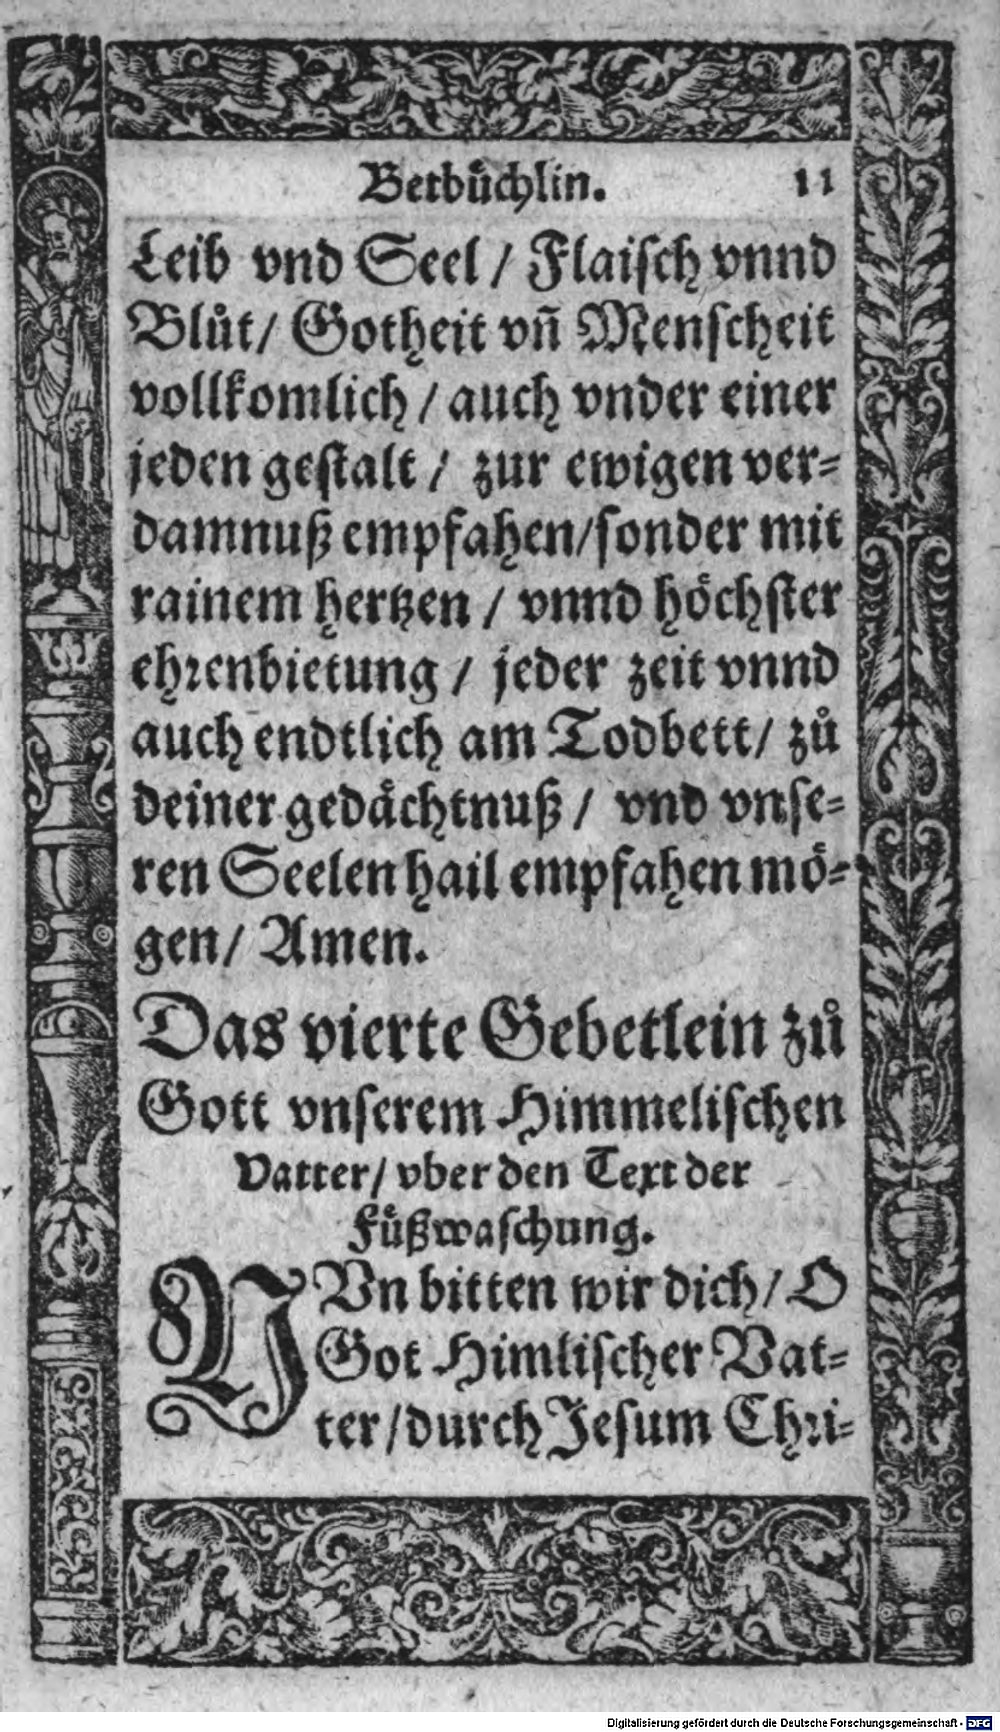 Betbuͤchlin. 11
Leib vnd Seel / Flaisch vnnd
Bluͦt / Gotheit vñ Menscheit
vollkomlich / auch vnder einer
jeden gestalt / zur ewigen ver=
damnuß empfahen / sonder mit
rainem hertzen / vnnd hoͤchster
ehrenbietung / jeder zeit vnnd
auch endtlich am Todbett / zuͦ
deiner gedaͤchtnuß / vnd vnse=
ren Seelen hail empfahen moͤ=
gen / Amen.
Das vierte Gebetlein zuͦ
Gott vnserem Himmelischen
Vatter / vber den Text der
Fuͤßwaschung.
VVn bitten wir dich / O
Got Himlischer Vat=
ter / durch Jesum Chri=
Digitalisierung gefördert durch die Deutsche Forschungsgemeinschaft - DFG